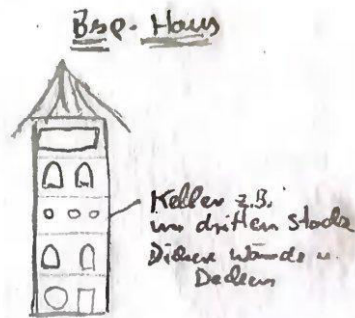 Bsp. Haus
Keller z.B.
im dritten Stock
Dicke Wände u.
Decken